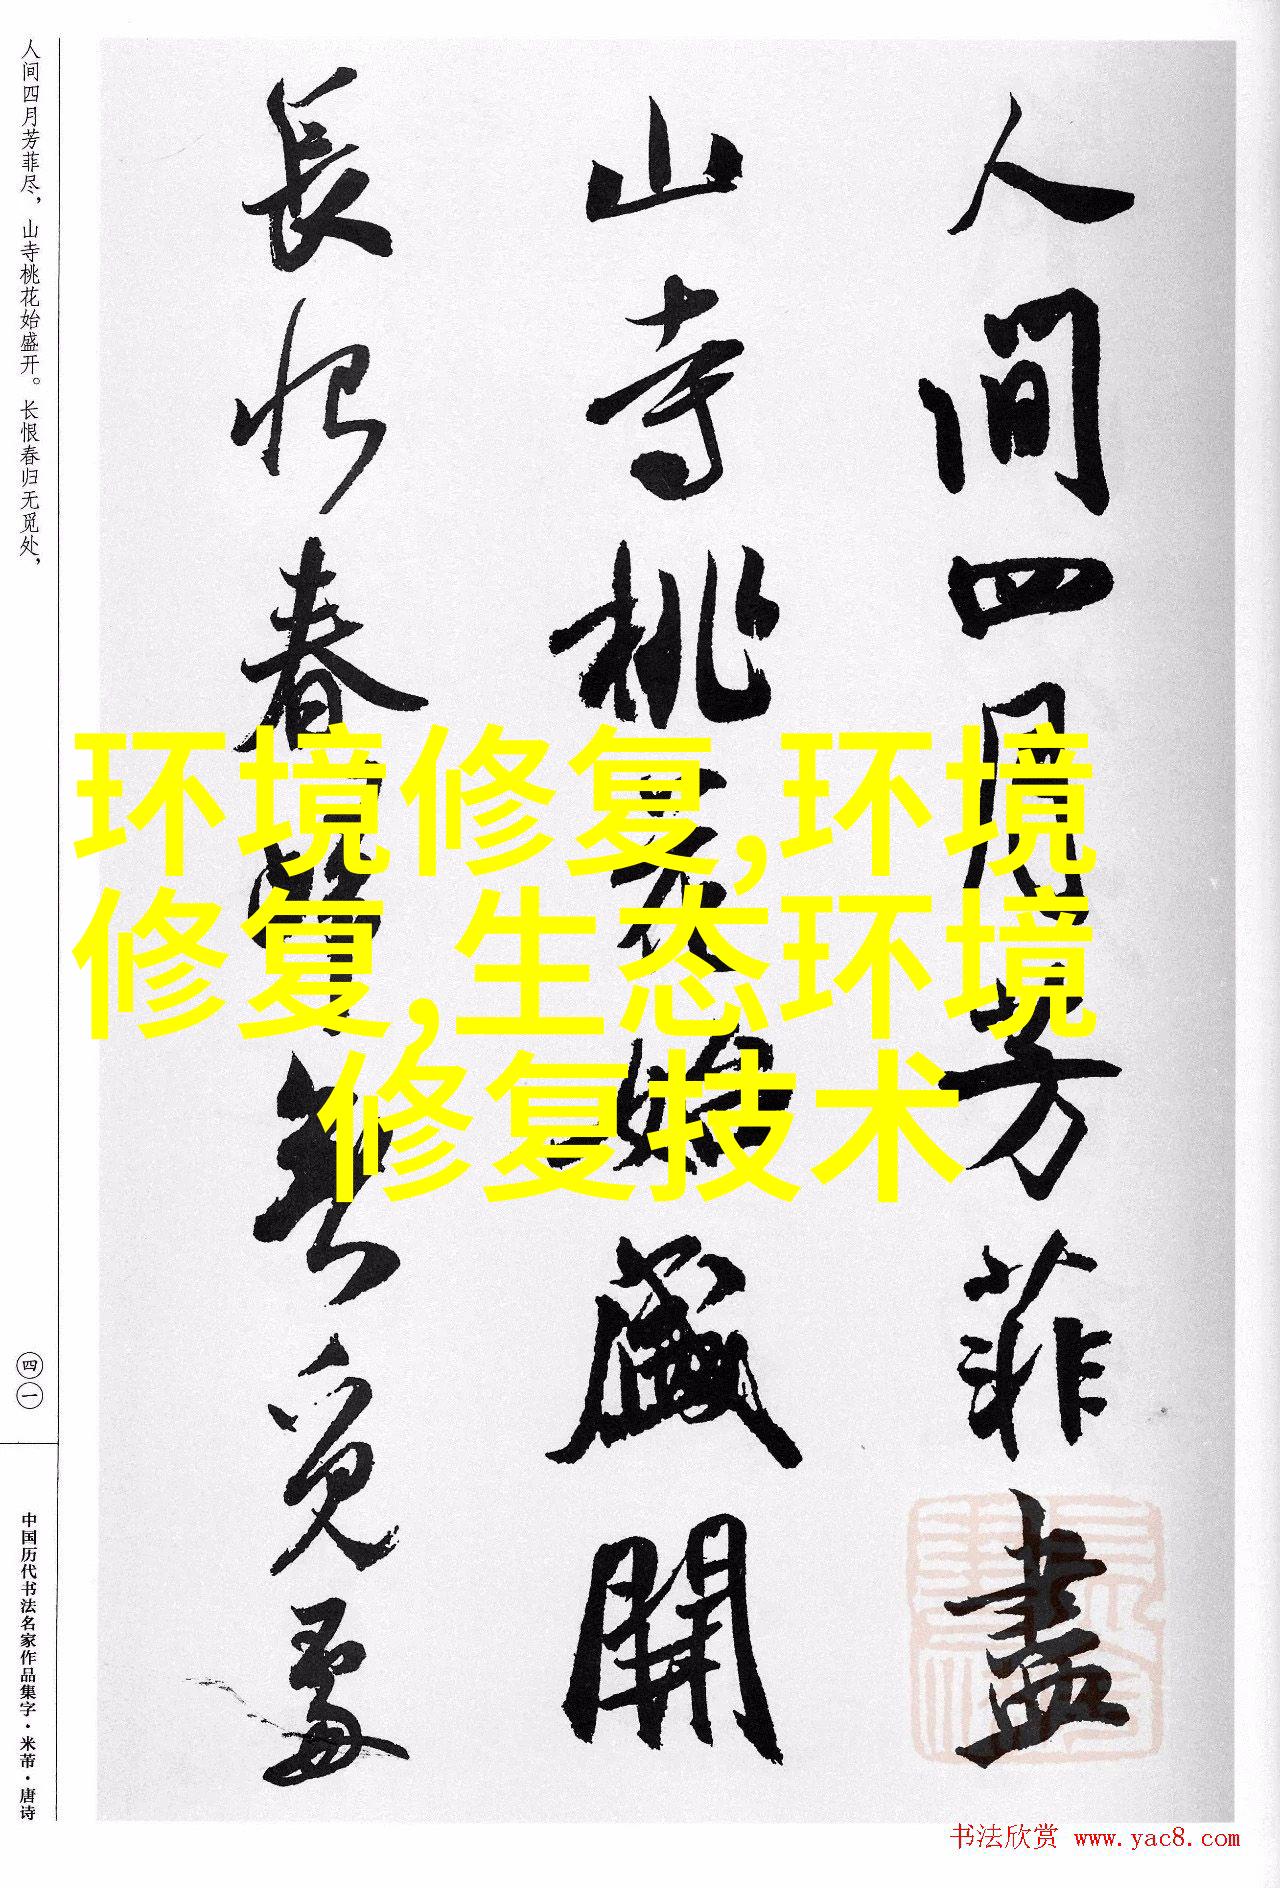 人间四月芳菲尽，山寺桃花始盛开。长恨春归无觅处，
四一
中国历代书法名家作品集字·米芾·唐诗
人間四月芳菲盡
山寺桃花始盛開
長恨春歸無覓處
环境修复,环境
修复,生态环境
修复技术
书法欣赏 www.yac8.com